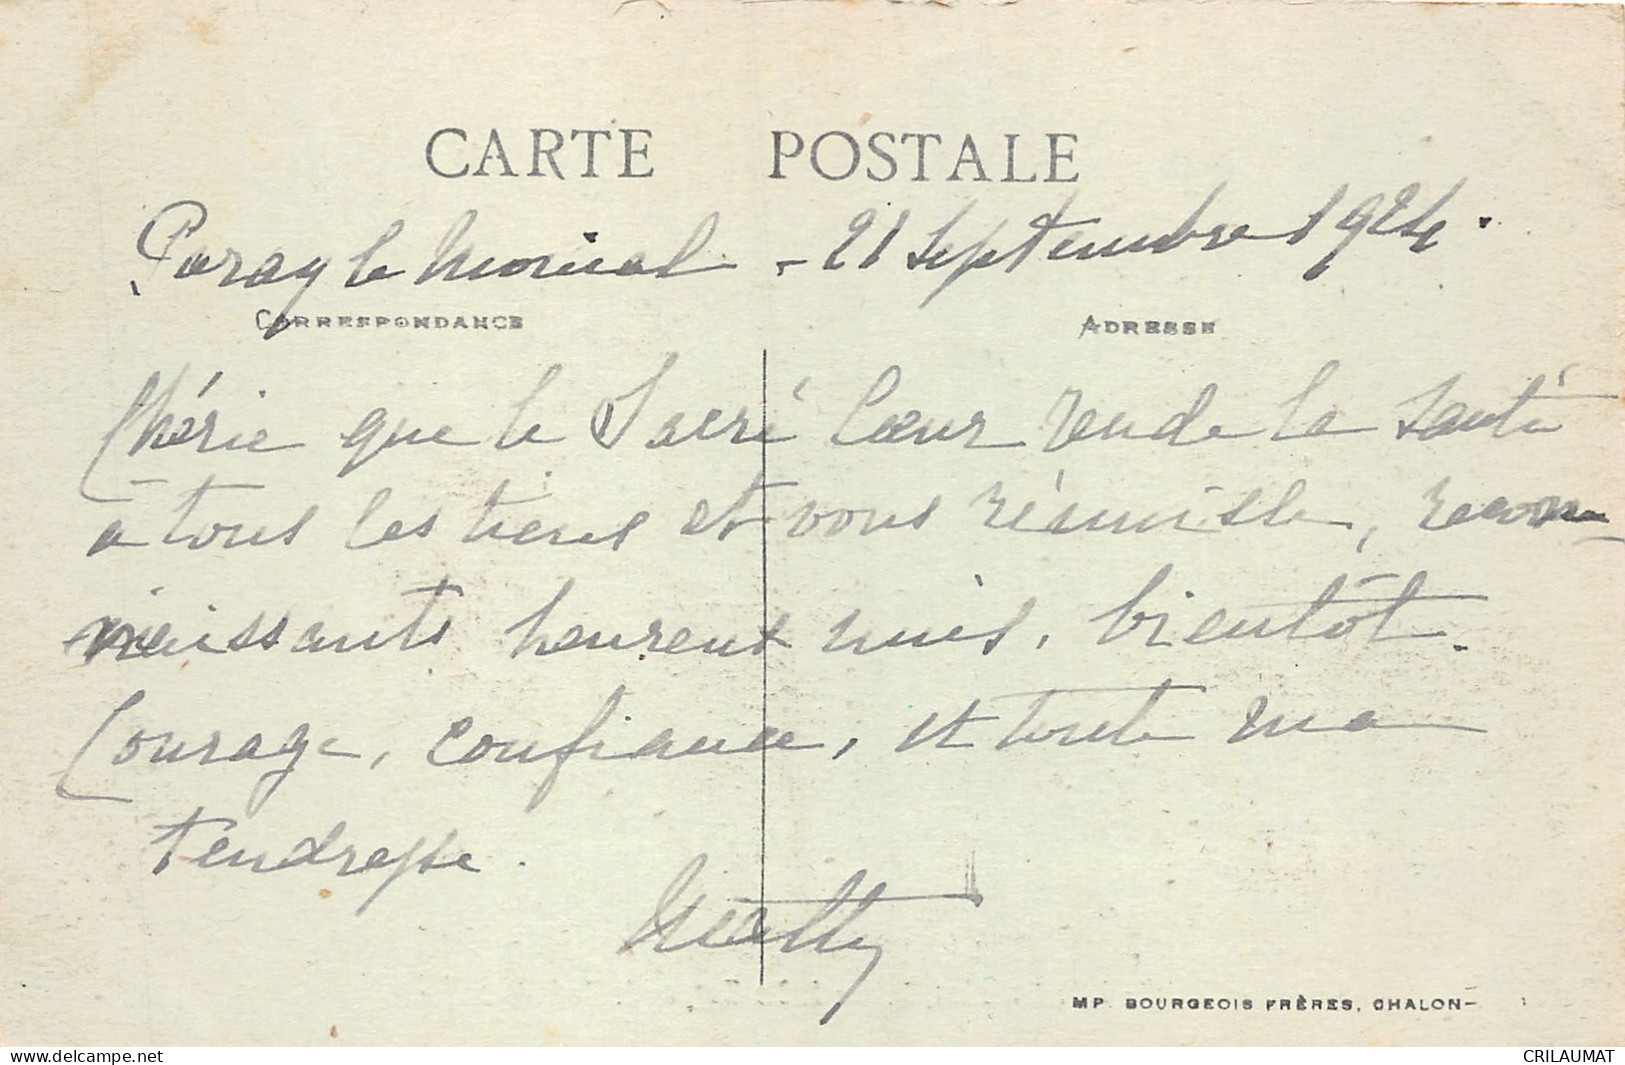 CARTE POSTALE
Paray le Monial - 21 Septembre 1924.
CORRESPONDANCE
ADRESSE
Chérie que le Sacré Cœur rende la santé
a tous les tiens et vous réunisse, recon-
naissants heureux unis, bientôt.
Courage, confiance, et toute ma
tendresse.
MP. BOURGEOIS FRÈRES, CHALON-
www.delcampe.net
CRILAUMAT